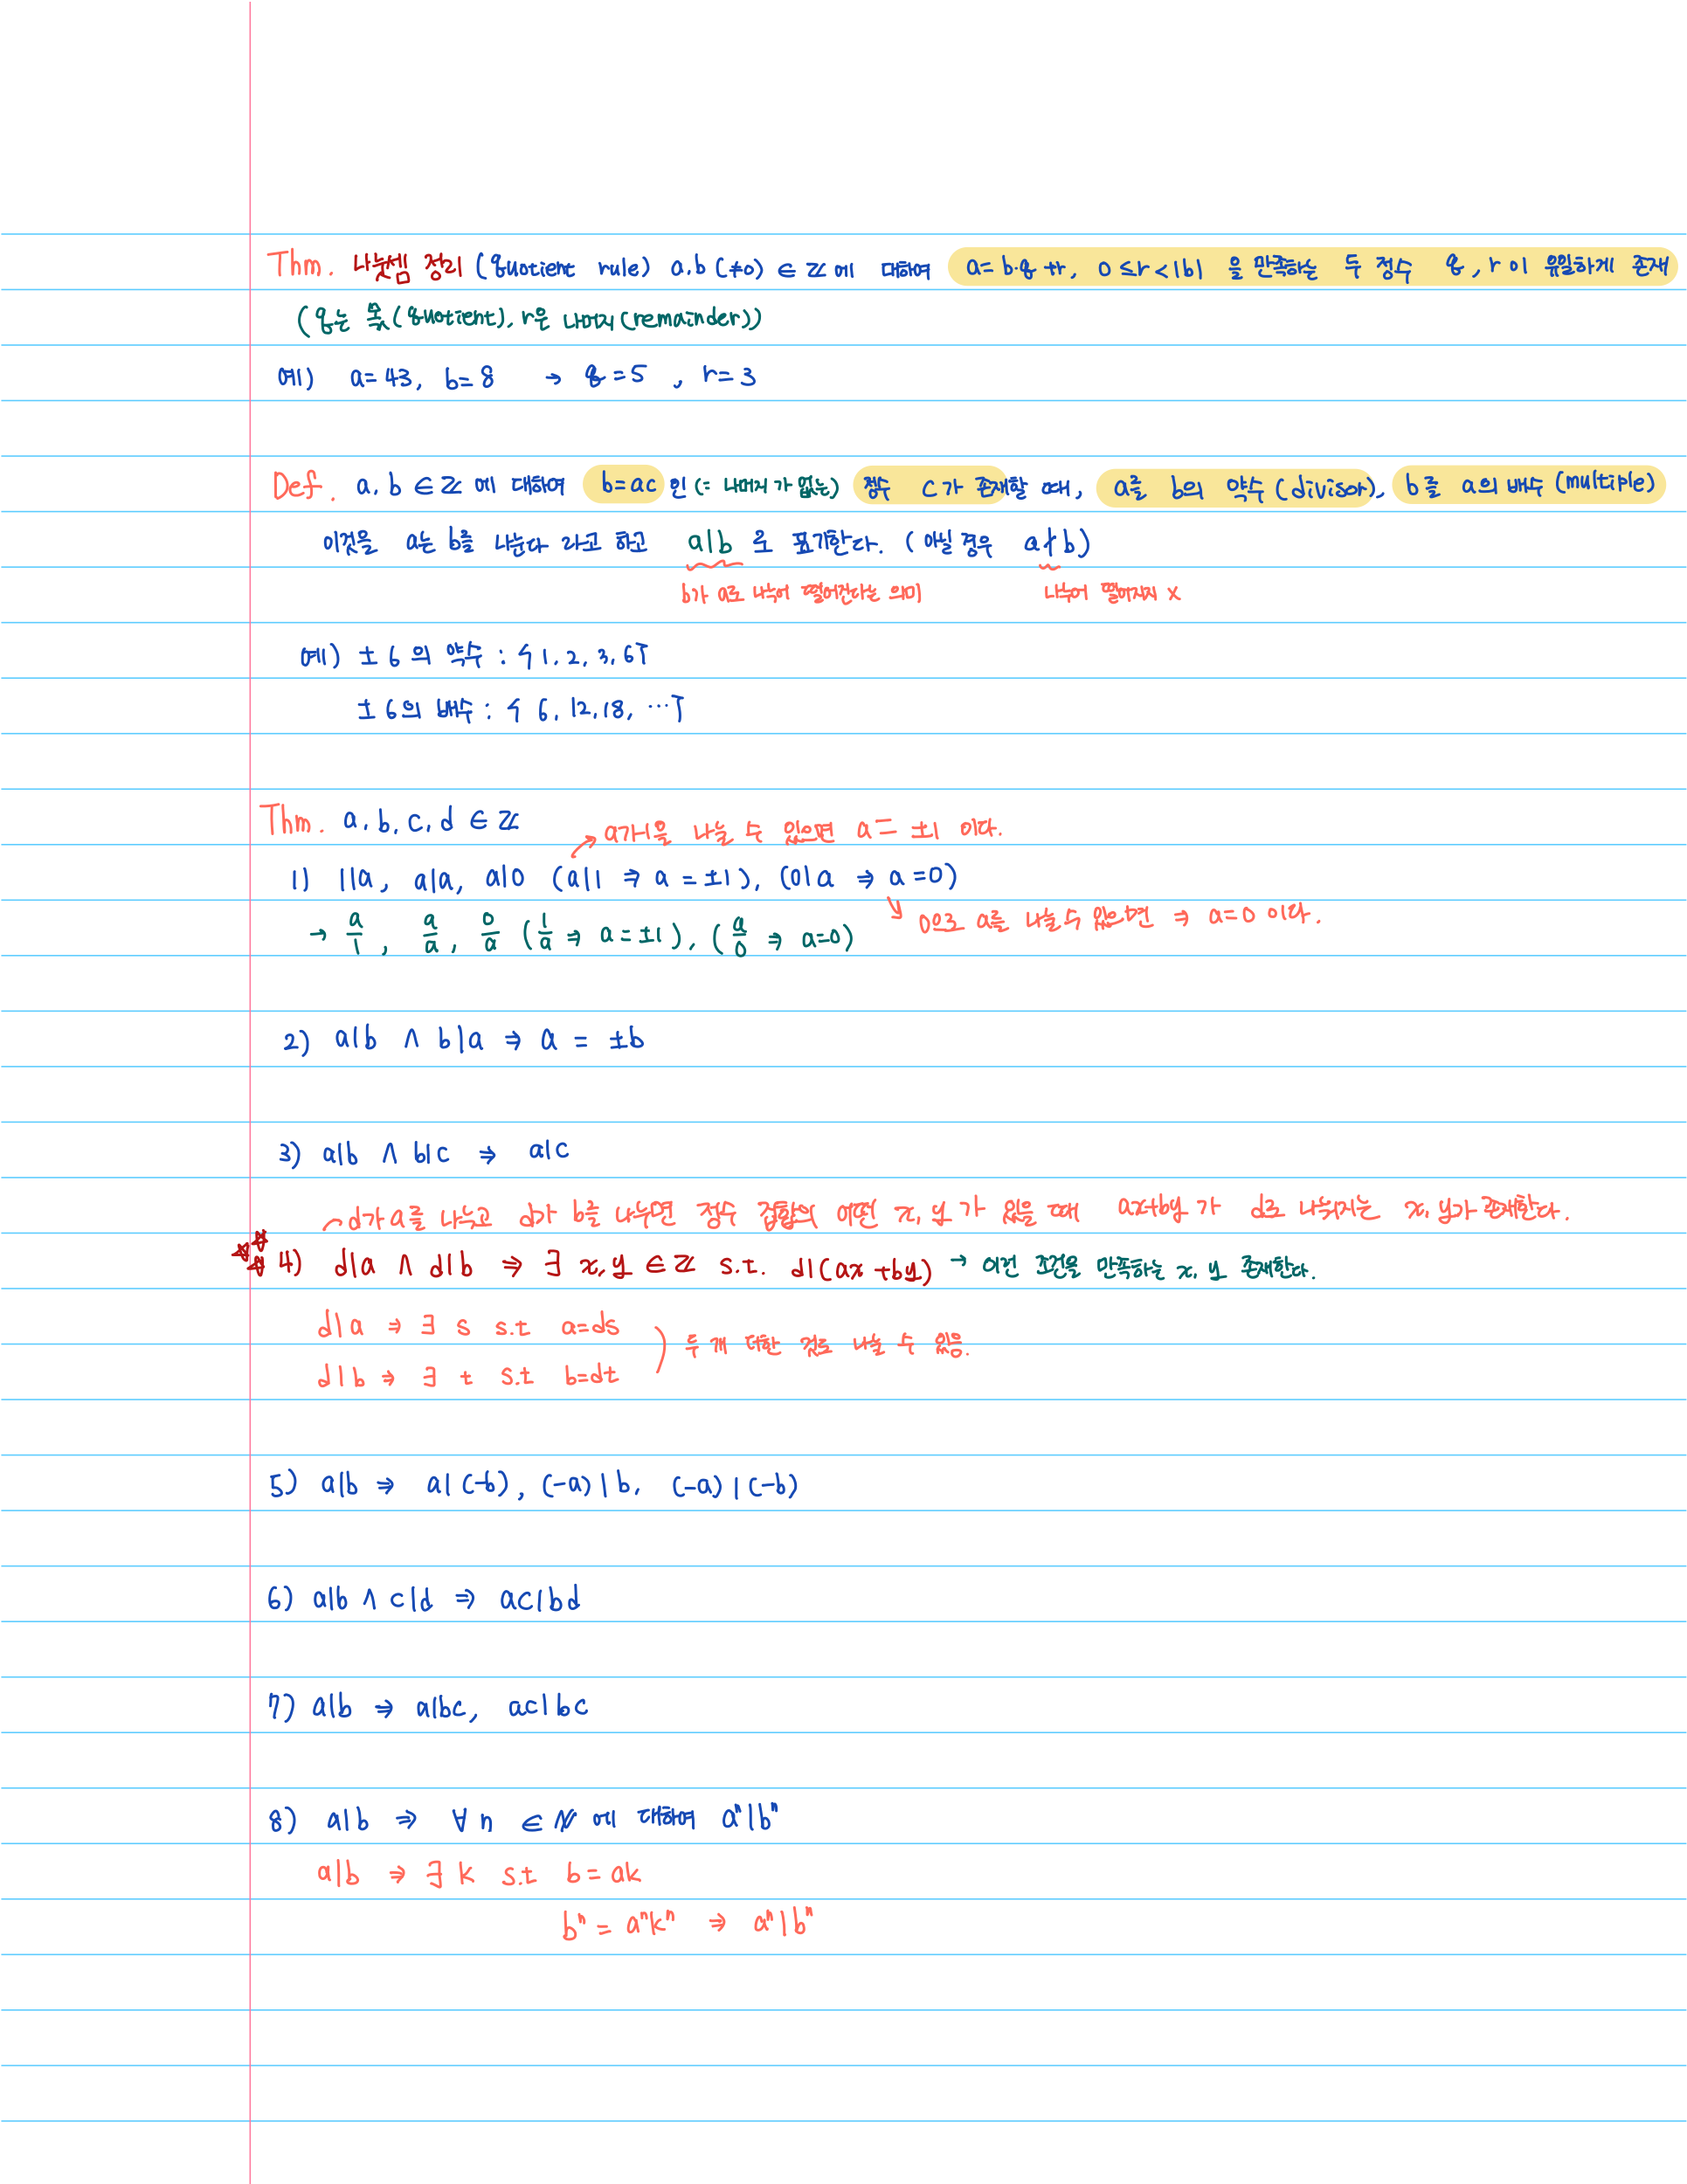 Thm. 나눗셈 정리 (quotient rule) a, b (≠0) ∈ ℤ 에 대하여 a = b·q + r, 0 ≤ r < |b| 을 만족하는 두 정수 q, r 이 유일하게 존재
(q는 몫(quotient), r은 나머지(remainder))
예) a = 43, b = 8 → q = 5, r = 3
Def. a, b ∈ ℤ 에 대하여 b = ac 인 (= 나머지가 없는) 정수 c가 존재할 때, a를 b의 약수 (divisor), b를 a의 배수 (multiple)
이것을 a는 b를 나눈다 라고 하고 a|b 로 표기한다. (아닐 경우 a∤b)
b가 a로 나누어 떨어진다는 의미 나누어 떨어지지 x
예) ±6 의 약수 : {1, 2, 3, 6}
±6의 배수 : {6, 12, 18, ⋯}
Thm. a, b, c, d ∈ ℤ
a가 1을 나눌 수 있으면 a = ±1 이다.
1) 1|a, a|a, a|0 (a|1 ⇒ a = ±1), (0|a ⇒ a = 0)
→ a/1, a/a, 0/a (1/a ⇒ a = ±1), (a/0 ⇒ a=0) 0으로 a를 나눌 수 있으면 ⇒ a = 0 이다.
2) a|b ∧ b|a ⇒ a = ±b
3) a|b ∧ b|c ⇒ a|c
d가 a를 나누고 d가 b를 나누면 정수 집합의 어떤 x, y 가 있을 때 ax+by 가 d로 나눠지는 x, y가 존재한다.
☆☆☆ 4) d|a ∧ d|b ⇒ ∃ x, y ∈ ℤ s.t. d|(ax + by) → 이런 조건을 만족하는 x, y 존재한다.
d|a ⇒ ∃ s s.t a=ds
두 개 더한 것로 나눌 수 있음.
d|b ⇒ ∃ t s.t b=dt
5) a|b ⇒ a|(-b), (-a)|b, (-a)|(-b)
6) a|b ∧ c|d ⇒ ac|bd
7) a|b ⇒ a|bc, ac|bc
8) a|b ⇒ ∀ n ∈ ℕ 에 대하여 aⁿ|bⁿ
a|b ⇒ ∃ k s.t b = ak
bⁿ = aⁿkⁿ ⇒ aⁿ|bⁿ